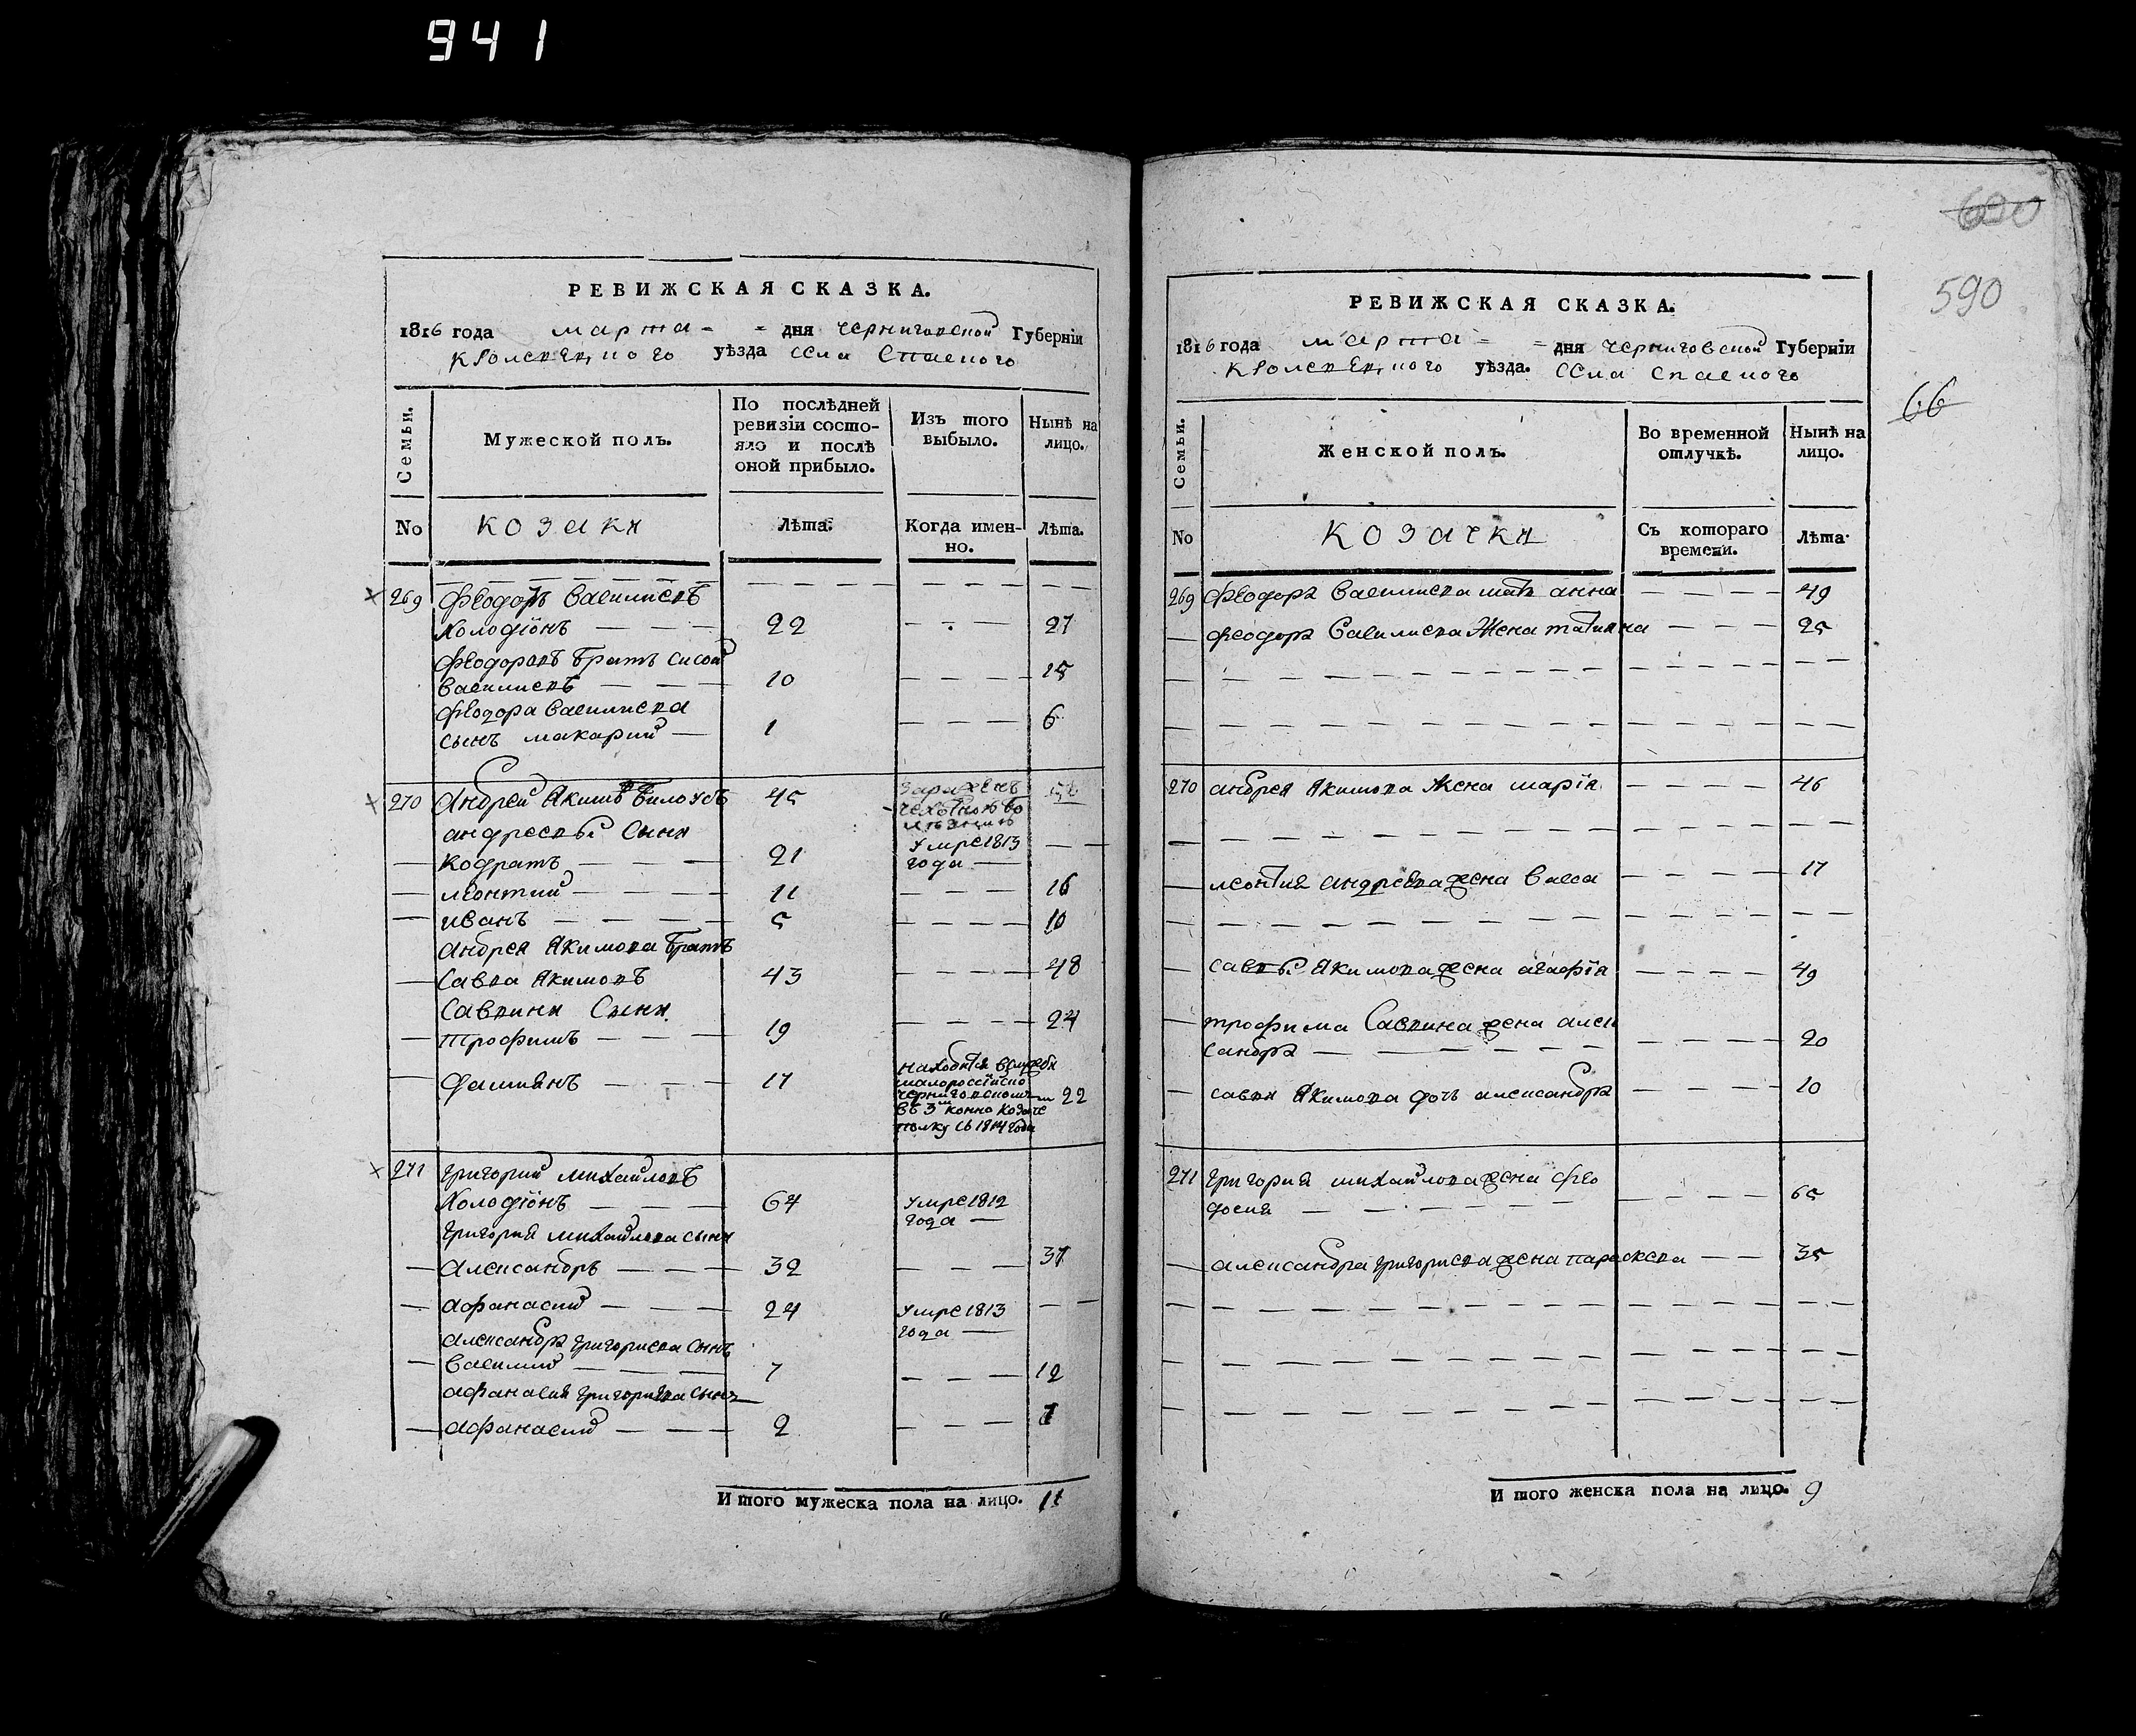 941
РЕВИЖСКАЯ СКАЗКА.
1816 года марта - = дня черниговской Губерніи
кролевецкого уѣзда села Спаского
Семьи.
Мужеской полъ.
По послѣдней
ревизіи состо-
яло и послѣ
оной прибыло.
Изъ того
выбыло.
Нынѣ на
лицо.
No козаки Лѣта. Когда имен-
но.
Лѣта.
269 Феодоръ Василиевъ
Холодіонъ 22 27
Феодоровъ братъ сисой
василиевъ 10 15
Феодора василиева
сынъ макарий 1 6
270 Андрей Якимовъ Билоусъ 45
андреевы сыни
кодратъ 21 умре 1813
года
леонтий 11 16
иванъ 5 10
Андрея Якимова братъ
Савва Якимовъ 43 48
Саввини Сыни
трофимъ 19 24
дамиянъ 17 находится в службы
малороссійско
черниговском
въ 3м конно козаче
полку съ 1814 года 22
271 григорий михайловъ
Холодіонъ 64 умре 1812
года
григория михайлова сыни
александръ 32 37
афанасий 24 умре 1813
года
александра григориева сынъ
василий 7 12
афанасия григориева сынъ
афанасий 2 7
И того мужеска пола на лицо. 11
600
590
66
РЕВИЖСКАЯ СКАЗКА.
1816 года марта - = дня черниговской Губерніи
кролевецкого уѣзда. села спаского
Семьи.
Женской полъ.
Во временной
отлучкѣ.
Нынѣ на
лицо.
No козачки Съ котораго
времени.
Лѣта.
269 Феодора василиева мать анна 49
феодора василиева жена татияна 25
270 андрея Якимова жена марія 46
леонтия андреева жена васса 17
саввы Якимова жена агафія 49
трофима Саввина жена алек
сандра 20
саввы Якимова дочь александра 10
271 григория михайлова жена фео
досия 65
александра григориева жена параскева 35
И того женска пола на лицо. 9